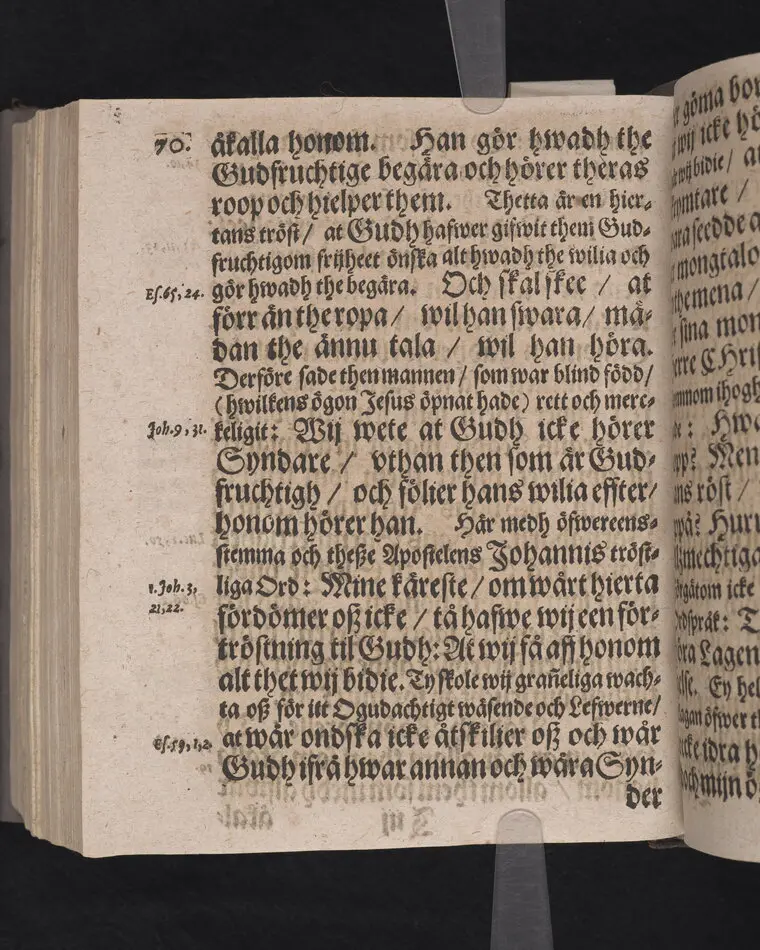 70. åkalla honom. Han gör hwadh the
Gudfruchtige begära och hörer theras
roop och hielper them. Thetta är en hier-
tans tröst / at Gudh hafwer gifwit them Gud-
fruchtigom frijheet önska alt hwadh the wilia och
Es. 65, 24. gör hwadh the begära. Och skal skee / at
förr än the ropa / wil han swara / mä-
dan the ännu tala / wil han höra.
Derföre sade then mannen / som war blind född /
(hwilkens ögon Jesus öpnat hade) rett och merc-
Joh. 9, 31. keligit: Wij wete at Gudh icke hörer
Syndare / vthan then som är Gud-
fruchtigh / och fölier hans wilia effter /
honom hörer han. Här medh öfwereens-
stemma och theße Apostelens Johannis tröst-
1. Joh. 3, liga Ord: Mine käreste / om wårt hierta
21, 22.
fördömer oß icke / tå hafwe wij een för-
tröstning til Gudh: At wij få aff honom
alt thet wij bidie. Ty skole wij grañeliga wach-
ta oß för itt Ogudachtigt wäsende och Lefwerne /
Es. 59, 1, 2. at wår ondska icke åtskilier oß och wår
Gudh ifrå hwar annan och wåra Syn-
der
göma
wij icke
bidie /
mongtalo
sina mon
röst /
icke
Lagen